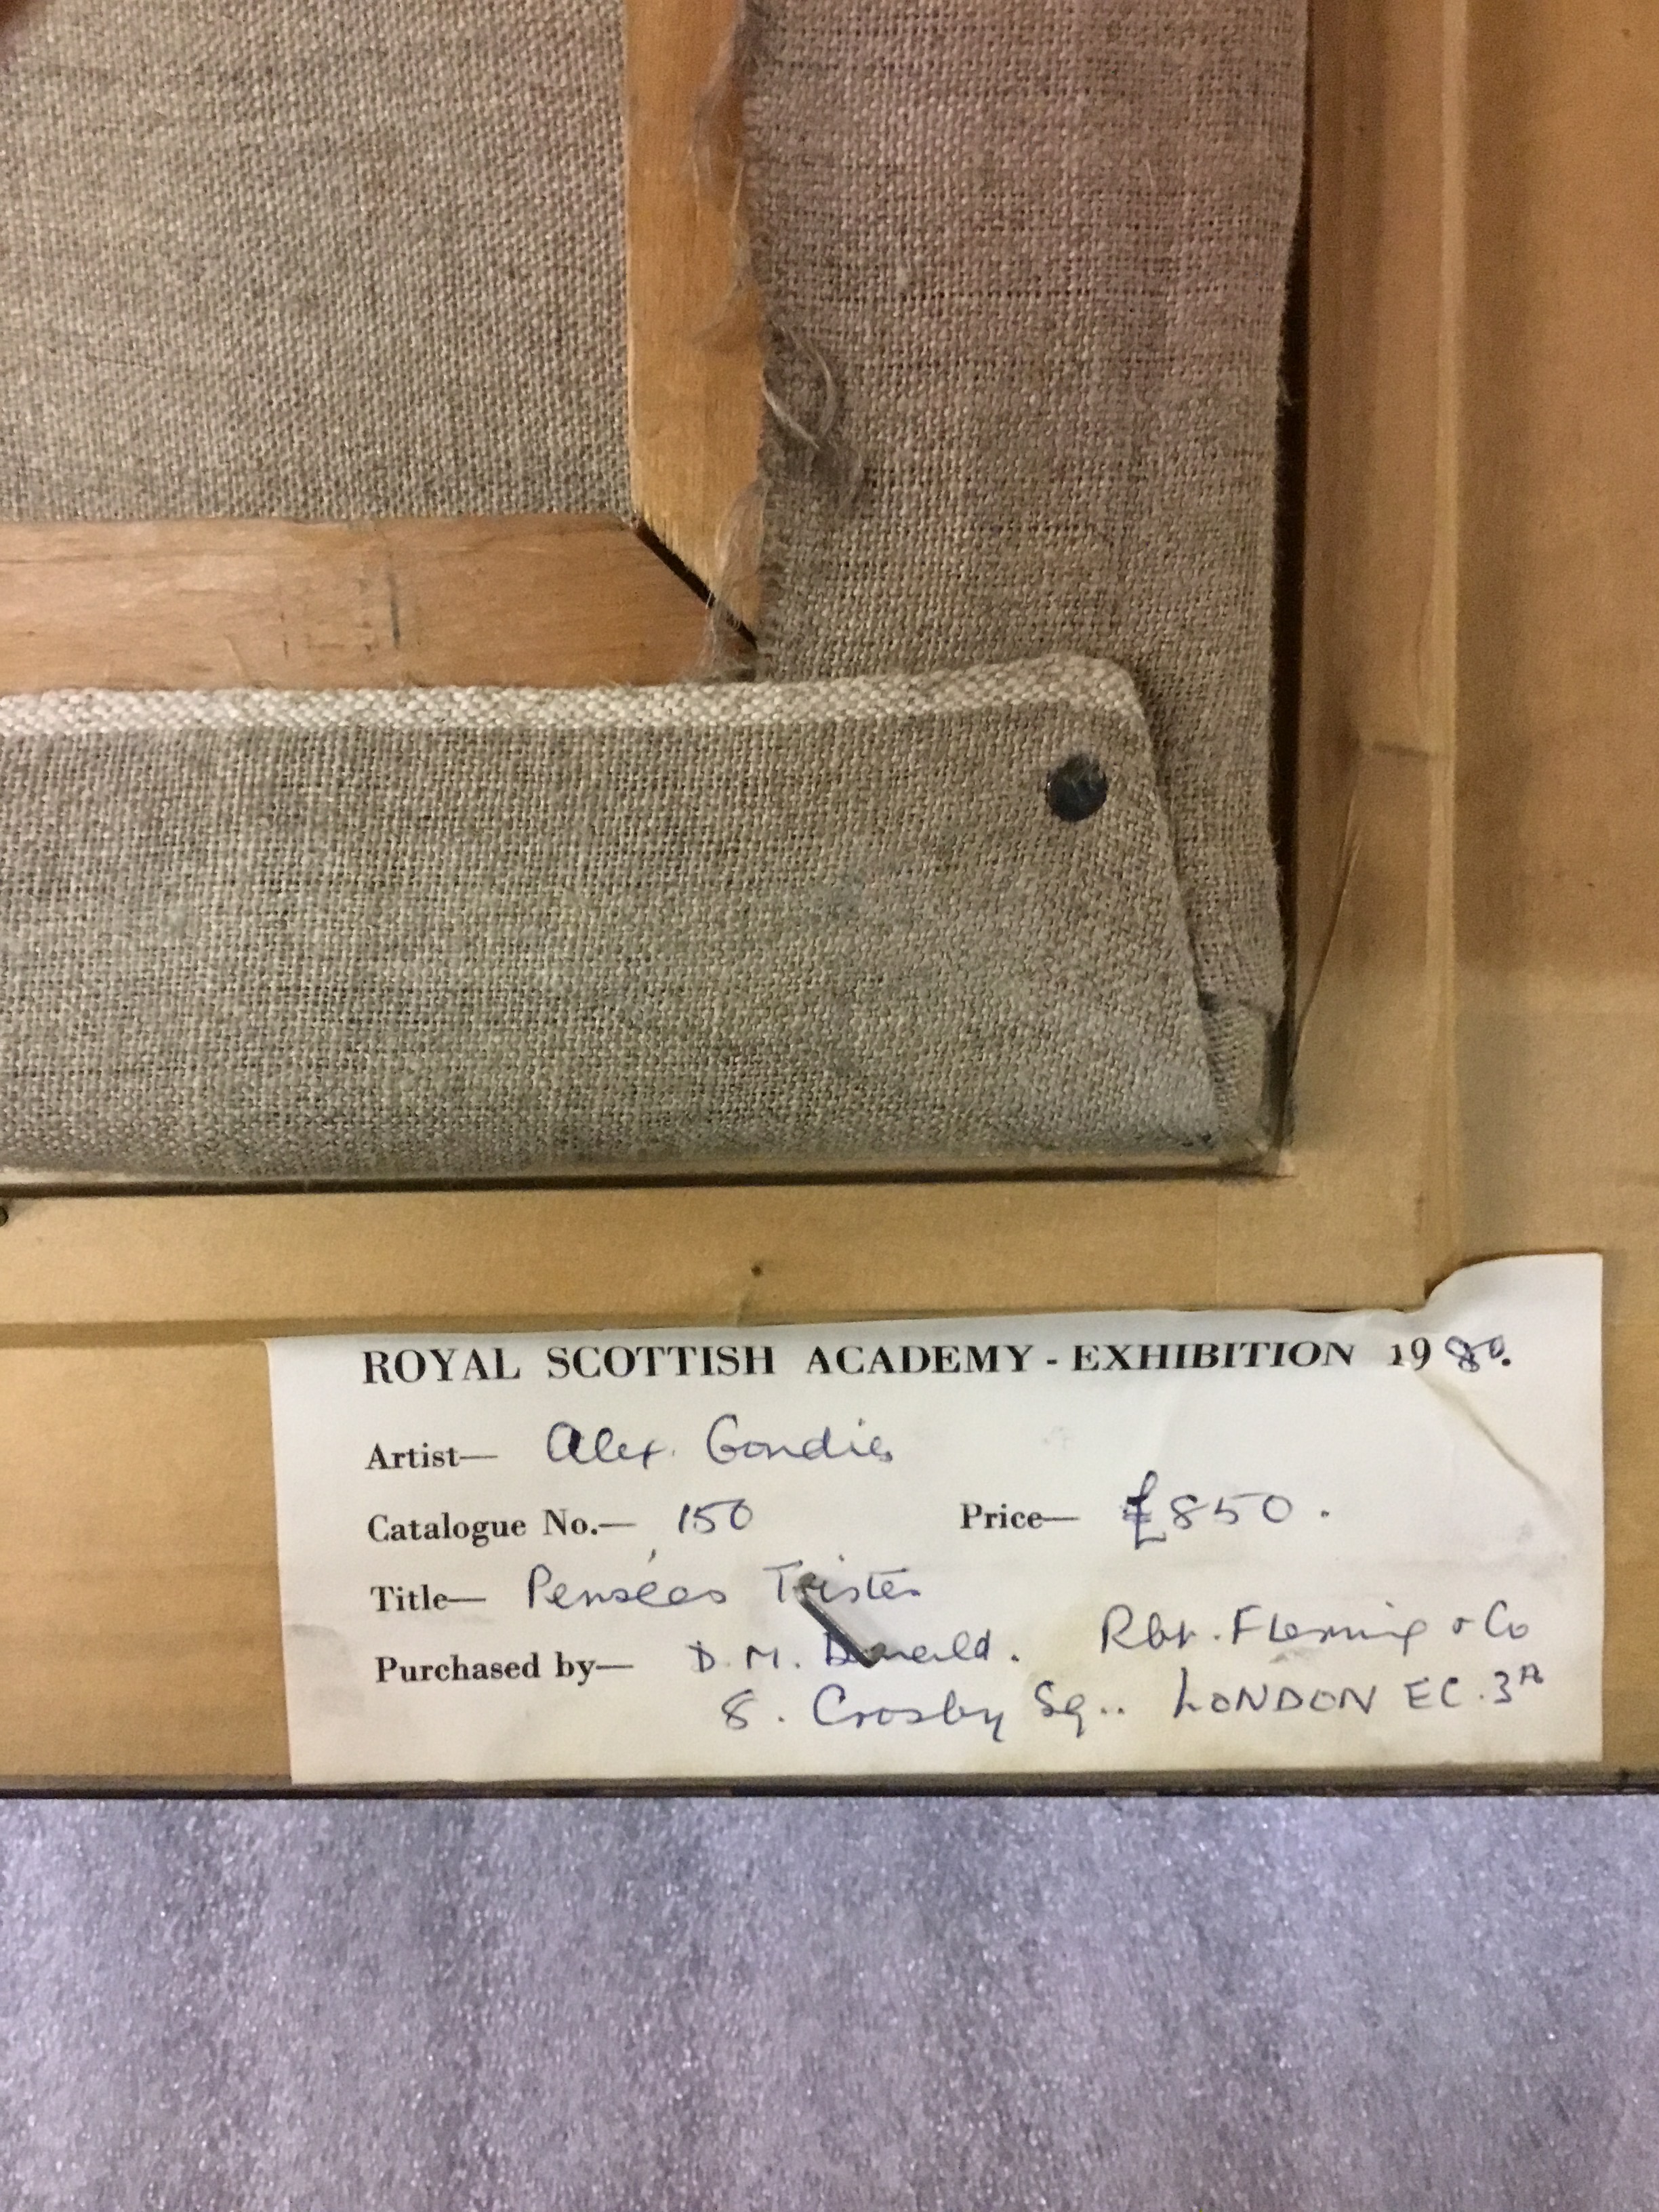 ROYAL SCOTTISH ACADEMY - EXHIBITION 1980.
Artist— Alex. Goudie
Catalogue No.— 150 Price— £850.
Title— Pensées Tristes
Purchased by— D. M. Donald. Rbt. Fleming & Co
8. Crosby Sq.. LONDON EC.3A